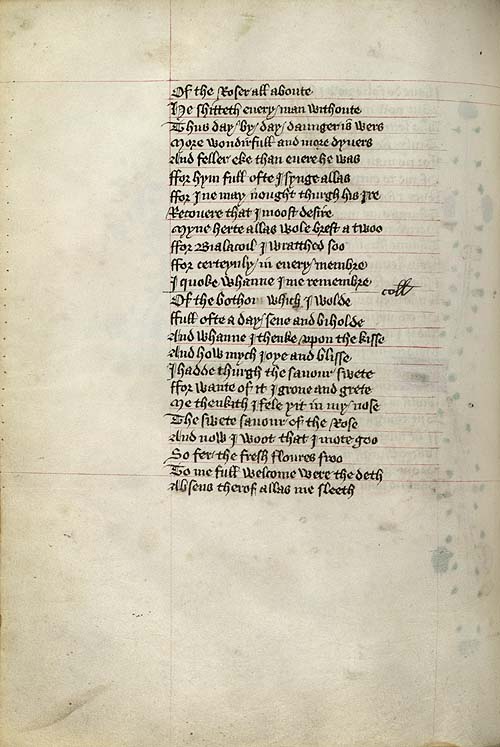 Of the Roser all aboute
He shitteth euery man withoute
Thus day by day daunger is wers
More wondirfull and more dyuers
And feller eke than euere he was
ffor hym full ofte I synge allas
ffor I ne may nought thurgh his Ire
Recouere that I moost desire
Myne herte allas wole brest a twoo
ffor Bialacoil I wratthed soo
ffor certeynly in euery membre
I quoke whanne I me remembre
Of the bothon which I wolde
ffull ofte a day sene and biholde
And whanne I thenke vpon the kisse
And how mych ioye and blisse
I hadde thurgh the sauour swete
ffor wante of it I grone and grete
Me thenkith I fele yit in my nose
The swete sauour of the Rose
And now I woot that I mote goo
So fer the fresh floures froo
To me full welcome were the deth
Absens therof allas me sleeth